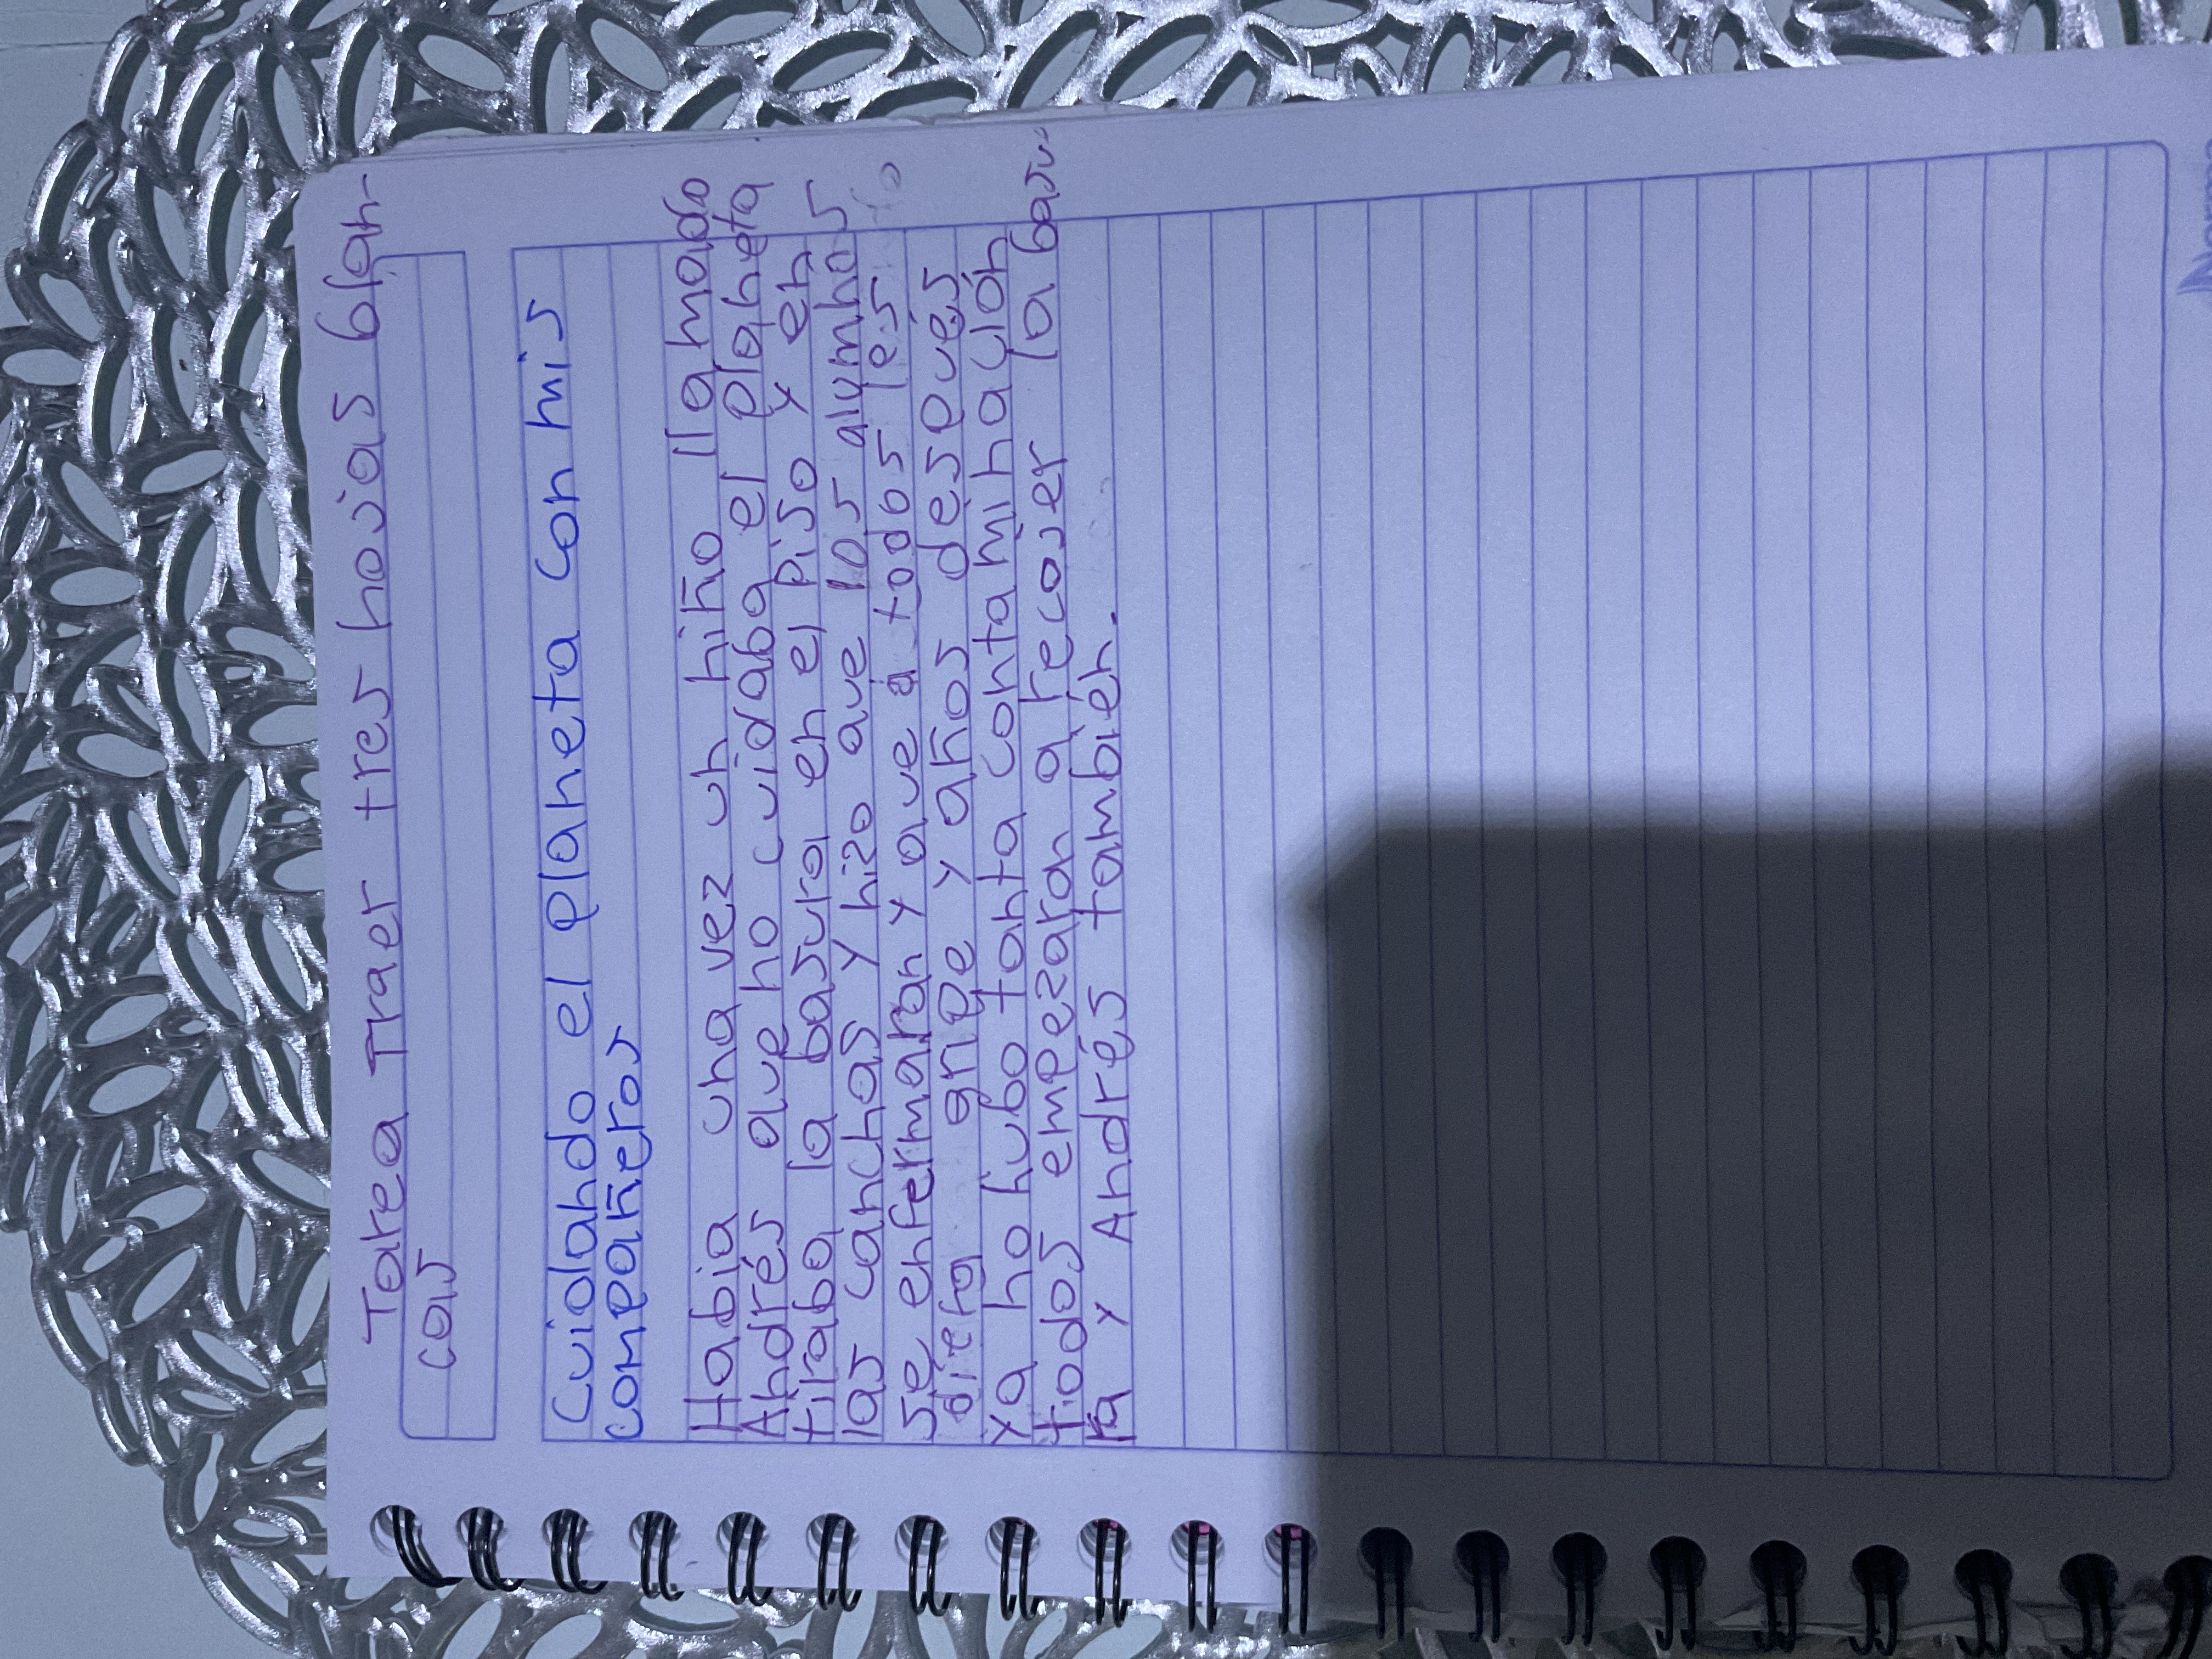 Tarea Traer tres hojas blan-
cas
Cuidando el planeta con mis
compañeros
Habia una vez un niño llamado
Andrés que no cuidaba el planeta
tiraba la basura en el piso y en
las canchas y hizo que los alumnos
se enfermaran y que a todos les
diera gripe y años después
ya no hubo tanta contaminación
todos empezaron a recojer la basu-
ra y Andrés también.